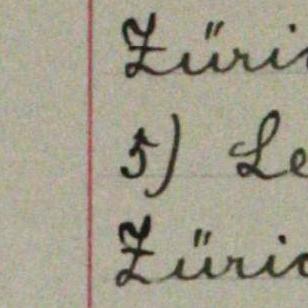 Züri
5) Le
Züric